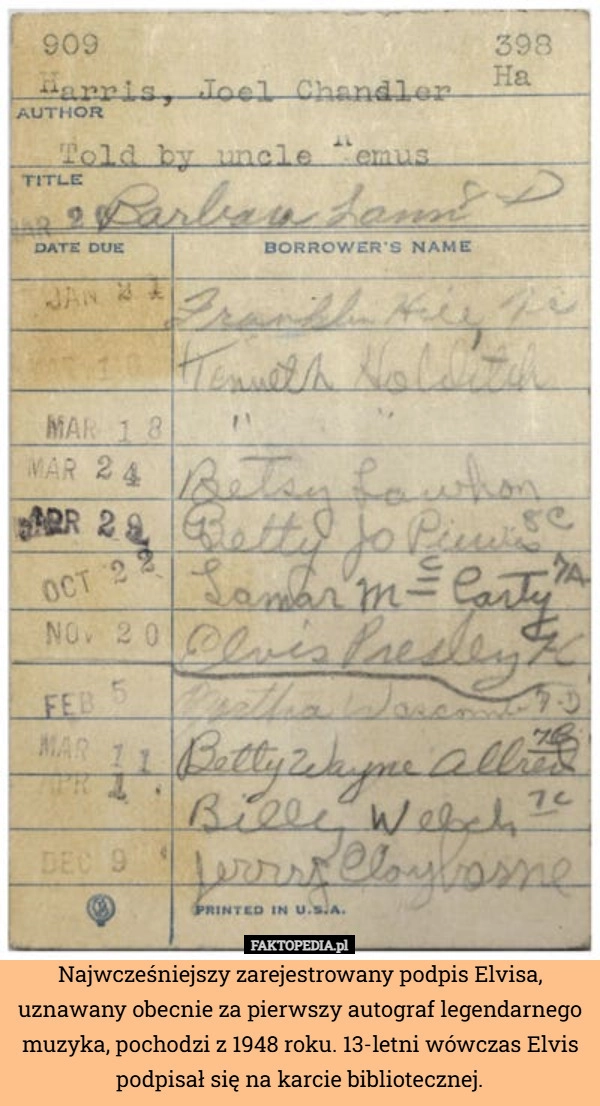 909 398
Harris, Joel Chandler Ha
AUTHOR
Told by uncle Remus
TITLE
MAR 2 Barbara 8 D
DATE DUE BORROWER'S NAME
JAN 24 Franklin Hill, Jr
Kenneth Holditch
MAR 18 " "
MAR 24 Betsy Lawhon
APR 29 Betty Jo 8C
OCT 22 Lamar McCarty 7A
NOV 20 Elvis Presley
FEB 5 Martha 7-D
MAR 11 Betty Wayne Allred 7B
APR 1 Billy Welch 7C
DEC 9 Jerrry Clayborne
PRINTED IN U.S.A.
FAKTOPEDIA.pl
Najwcześniejszy zarejestrowany podpis Elvisa,
uznawany obecnie za pierwszy autograf legendarnego
muzyka, pochodzi z 1948 roku. 13-letni wówczas Elvis
podpisał się na karcie bibliotecznej.